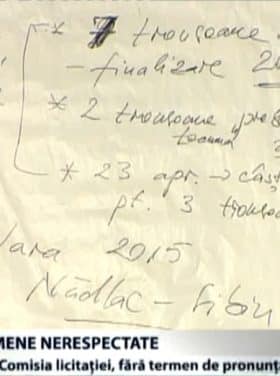 * 7 tronsoane
- finalizare 20
* 2 tronsoane pre
toamnă
* 23 apr. → câșt
pt. 3 trons
Vara 2015
Nădlac - Sibiu
MENE NERESPECTATE
Comisia licitației, fără termen de pronunț